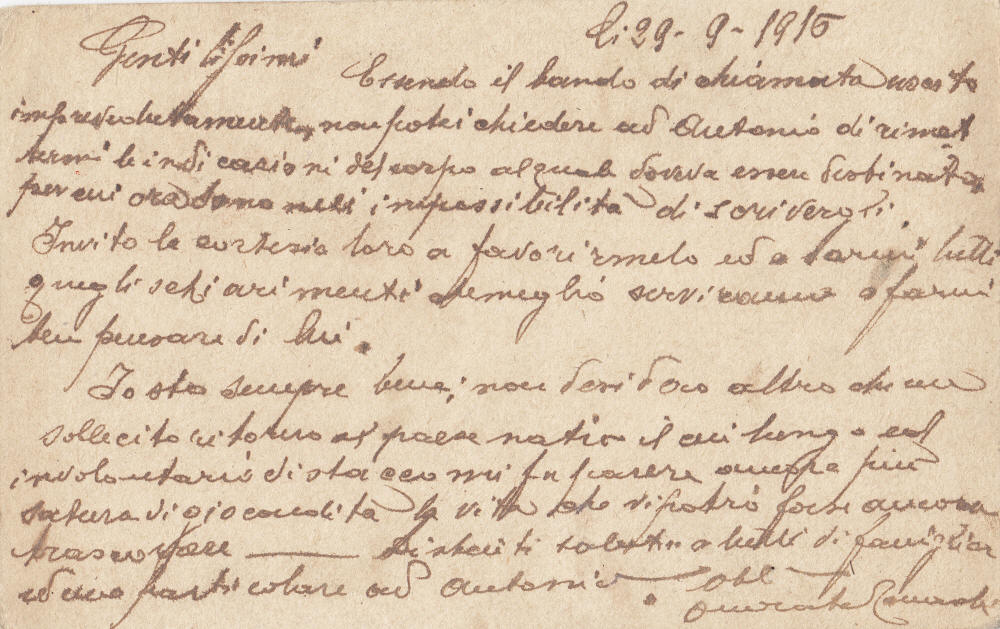 li 29 - 9 - 1916
Gentilissimi
Essendo il bando di chiamata uscito
imprevedutamente, non potei chiedere ad Antonio di rimet
termi le indicazioni del corpo al quale doveva essere destinato,
per cui ora sono nell' impossibilità di scrivergli.
Invito la cortesia loro a favorirmelo ed a darmi tutti
quegli schiarimenti che meglio serviranno a farmi
ben pensare di lui.
Io sto sempre bene; non desidero altro che un
sollecito ritorno al paese natio il cui lungo ed
involontario distacco mi fa parere ancora più
satura di giocondità la vita che vi potrò forse ancora
trascorrere ——— Distinti saluti a tutti di famiglia
ed uno particolare ad Antonio. Obb